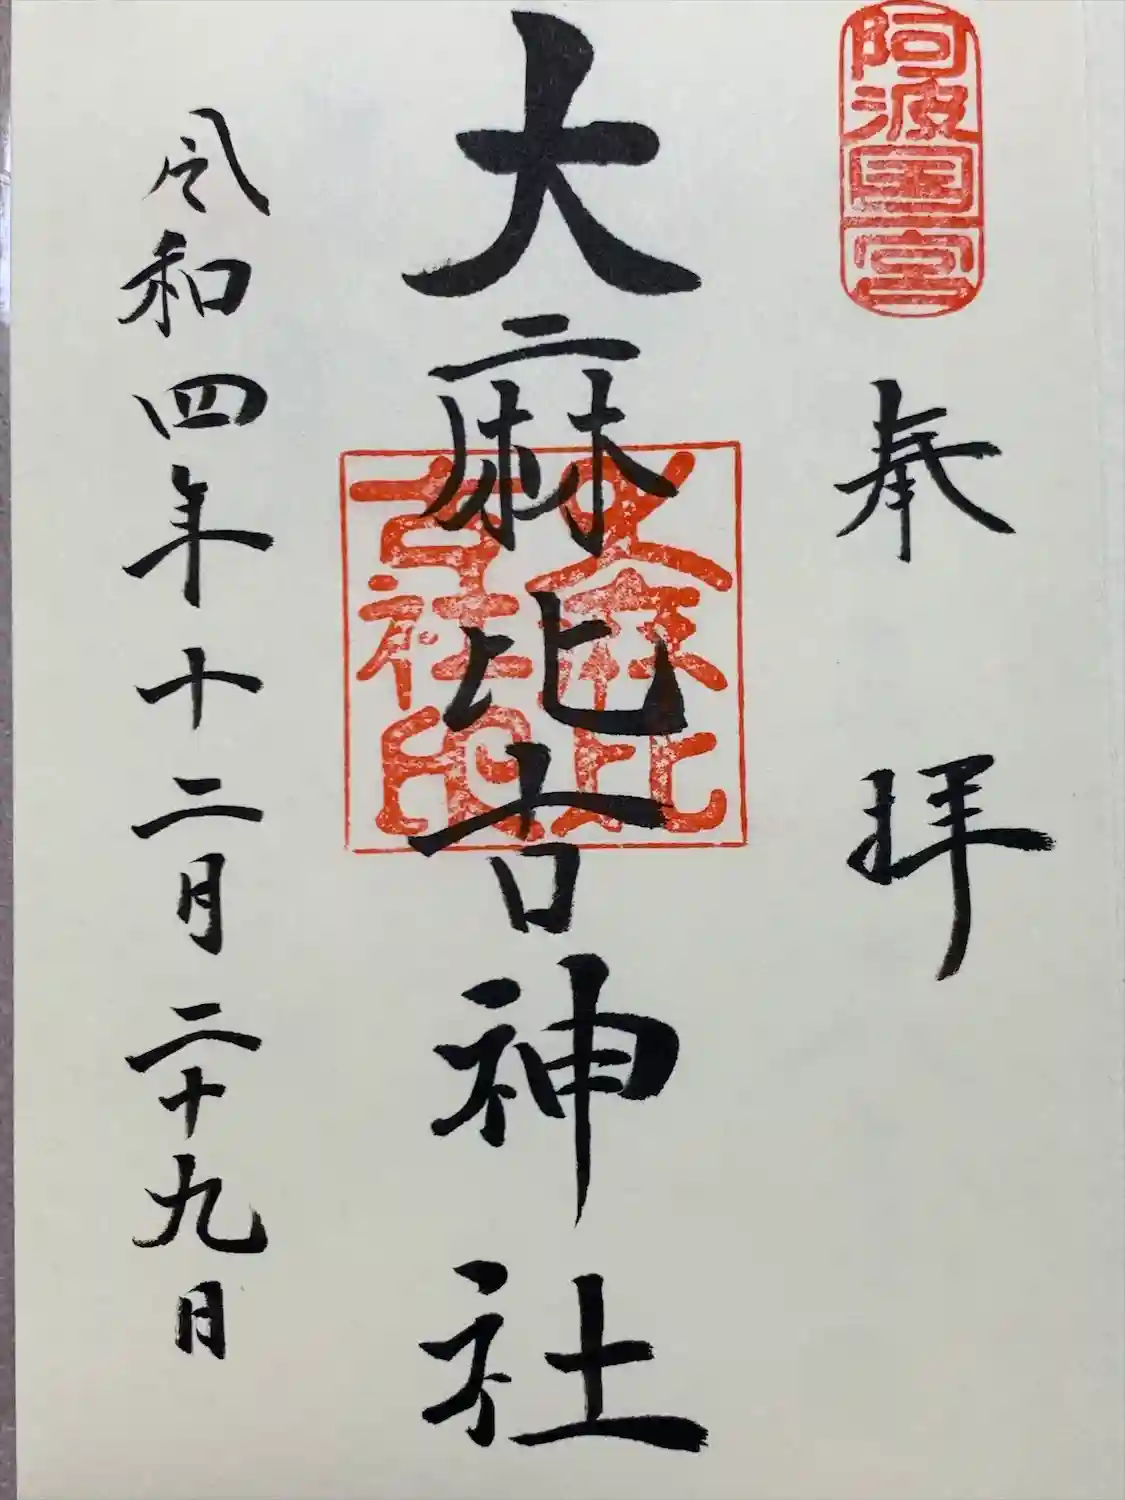 阿波國一宮
奉拝
大麻比古神社
大麻比古社印
令和四年十二月二十九日